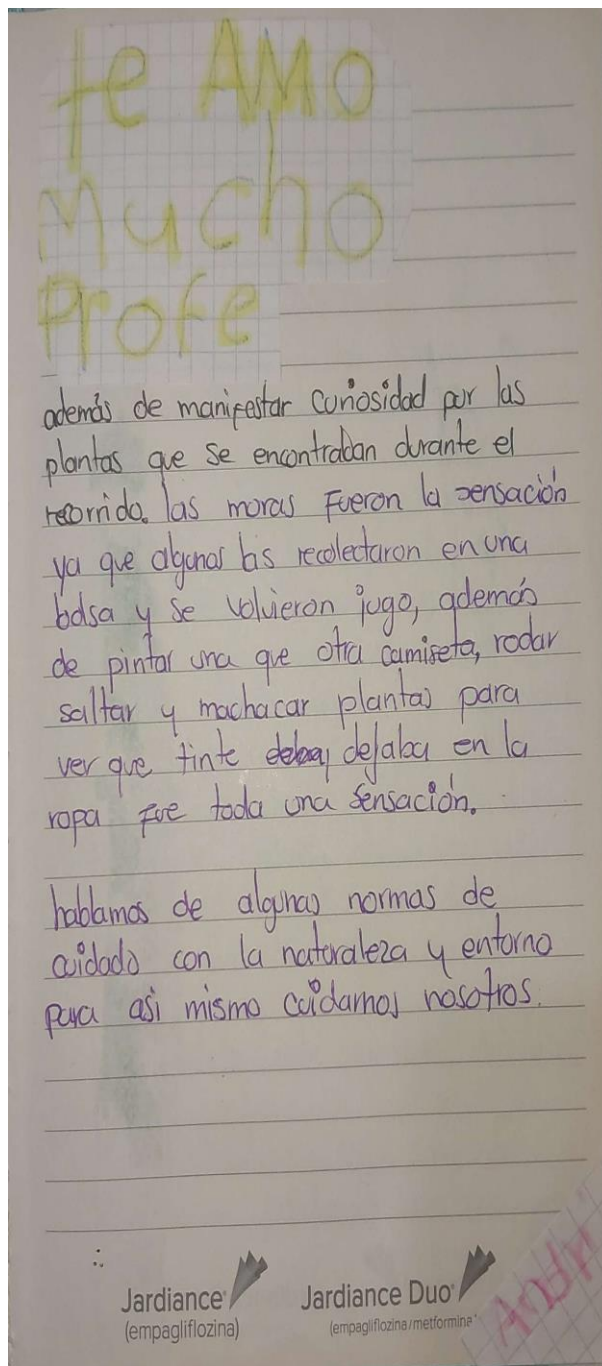 te AMO
Mucho
Profe
además de manifestar curiosidad por las
plantas que se encontraban durante el
recorrido. las moras fueron la sensación
ya que algunos las recolectaron en una
bolsa y se volvieron jugo, además
de pintar una que otra camiseta, rodar
saltar y machacar plantas para
ver que tinte dejaba en la
ropa fue toda una sensación.
hablamos de algunas normas de
cuidado con la naturaleza y entorno
para asi mismo cuidarnos nosotros.
Jardiance® Jardiance Duo®
(empagliflozina) (empagliflozina/metformina)